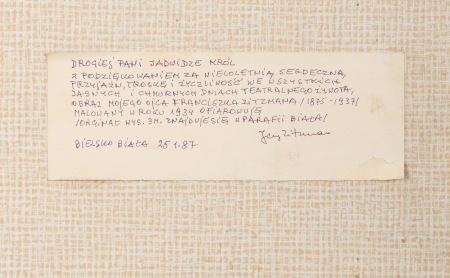 DROGIEJ PANI JADWIDZE KRÓL
Z PODZIĘKOWANIEM ZA WIELOLETNIĄ SERDECZNĄ
PRZYJAŹŃ, TROSKĘ I ŻYCZLIWOŚĆ WE WSZYSTKICH
JASNYCH I CHMURNYCH DNIACH TEATRALNEGO ŻYWOTA,
OBRAZ MOJEGO OJCA FRANCISZKA ZITZMANA /1875-1937/
MALOWANY W ROKU 1934 OFIAROWUJĘ
/ORGINAŁ WYS. 3M. ZNAJDUJE SIĘ W PARAFII BIAŁA/
Jerzy Zitzman
BIELSKO BIAŁA 25.1.87